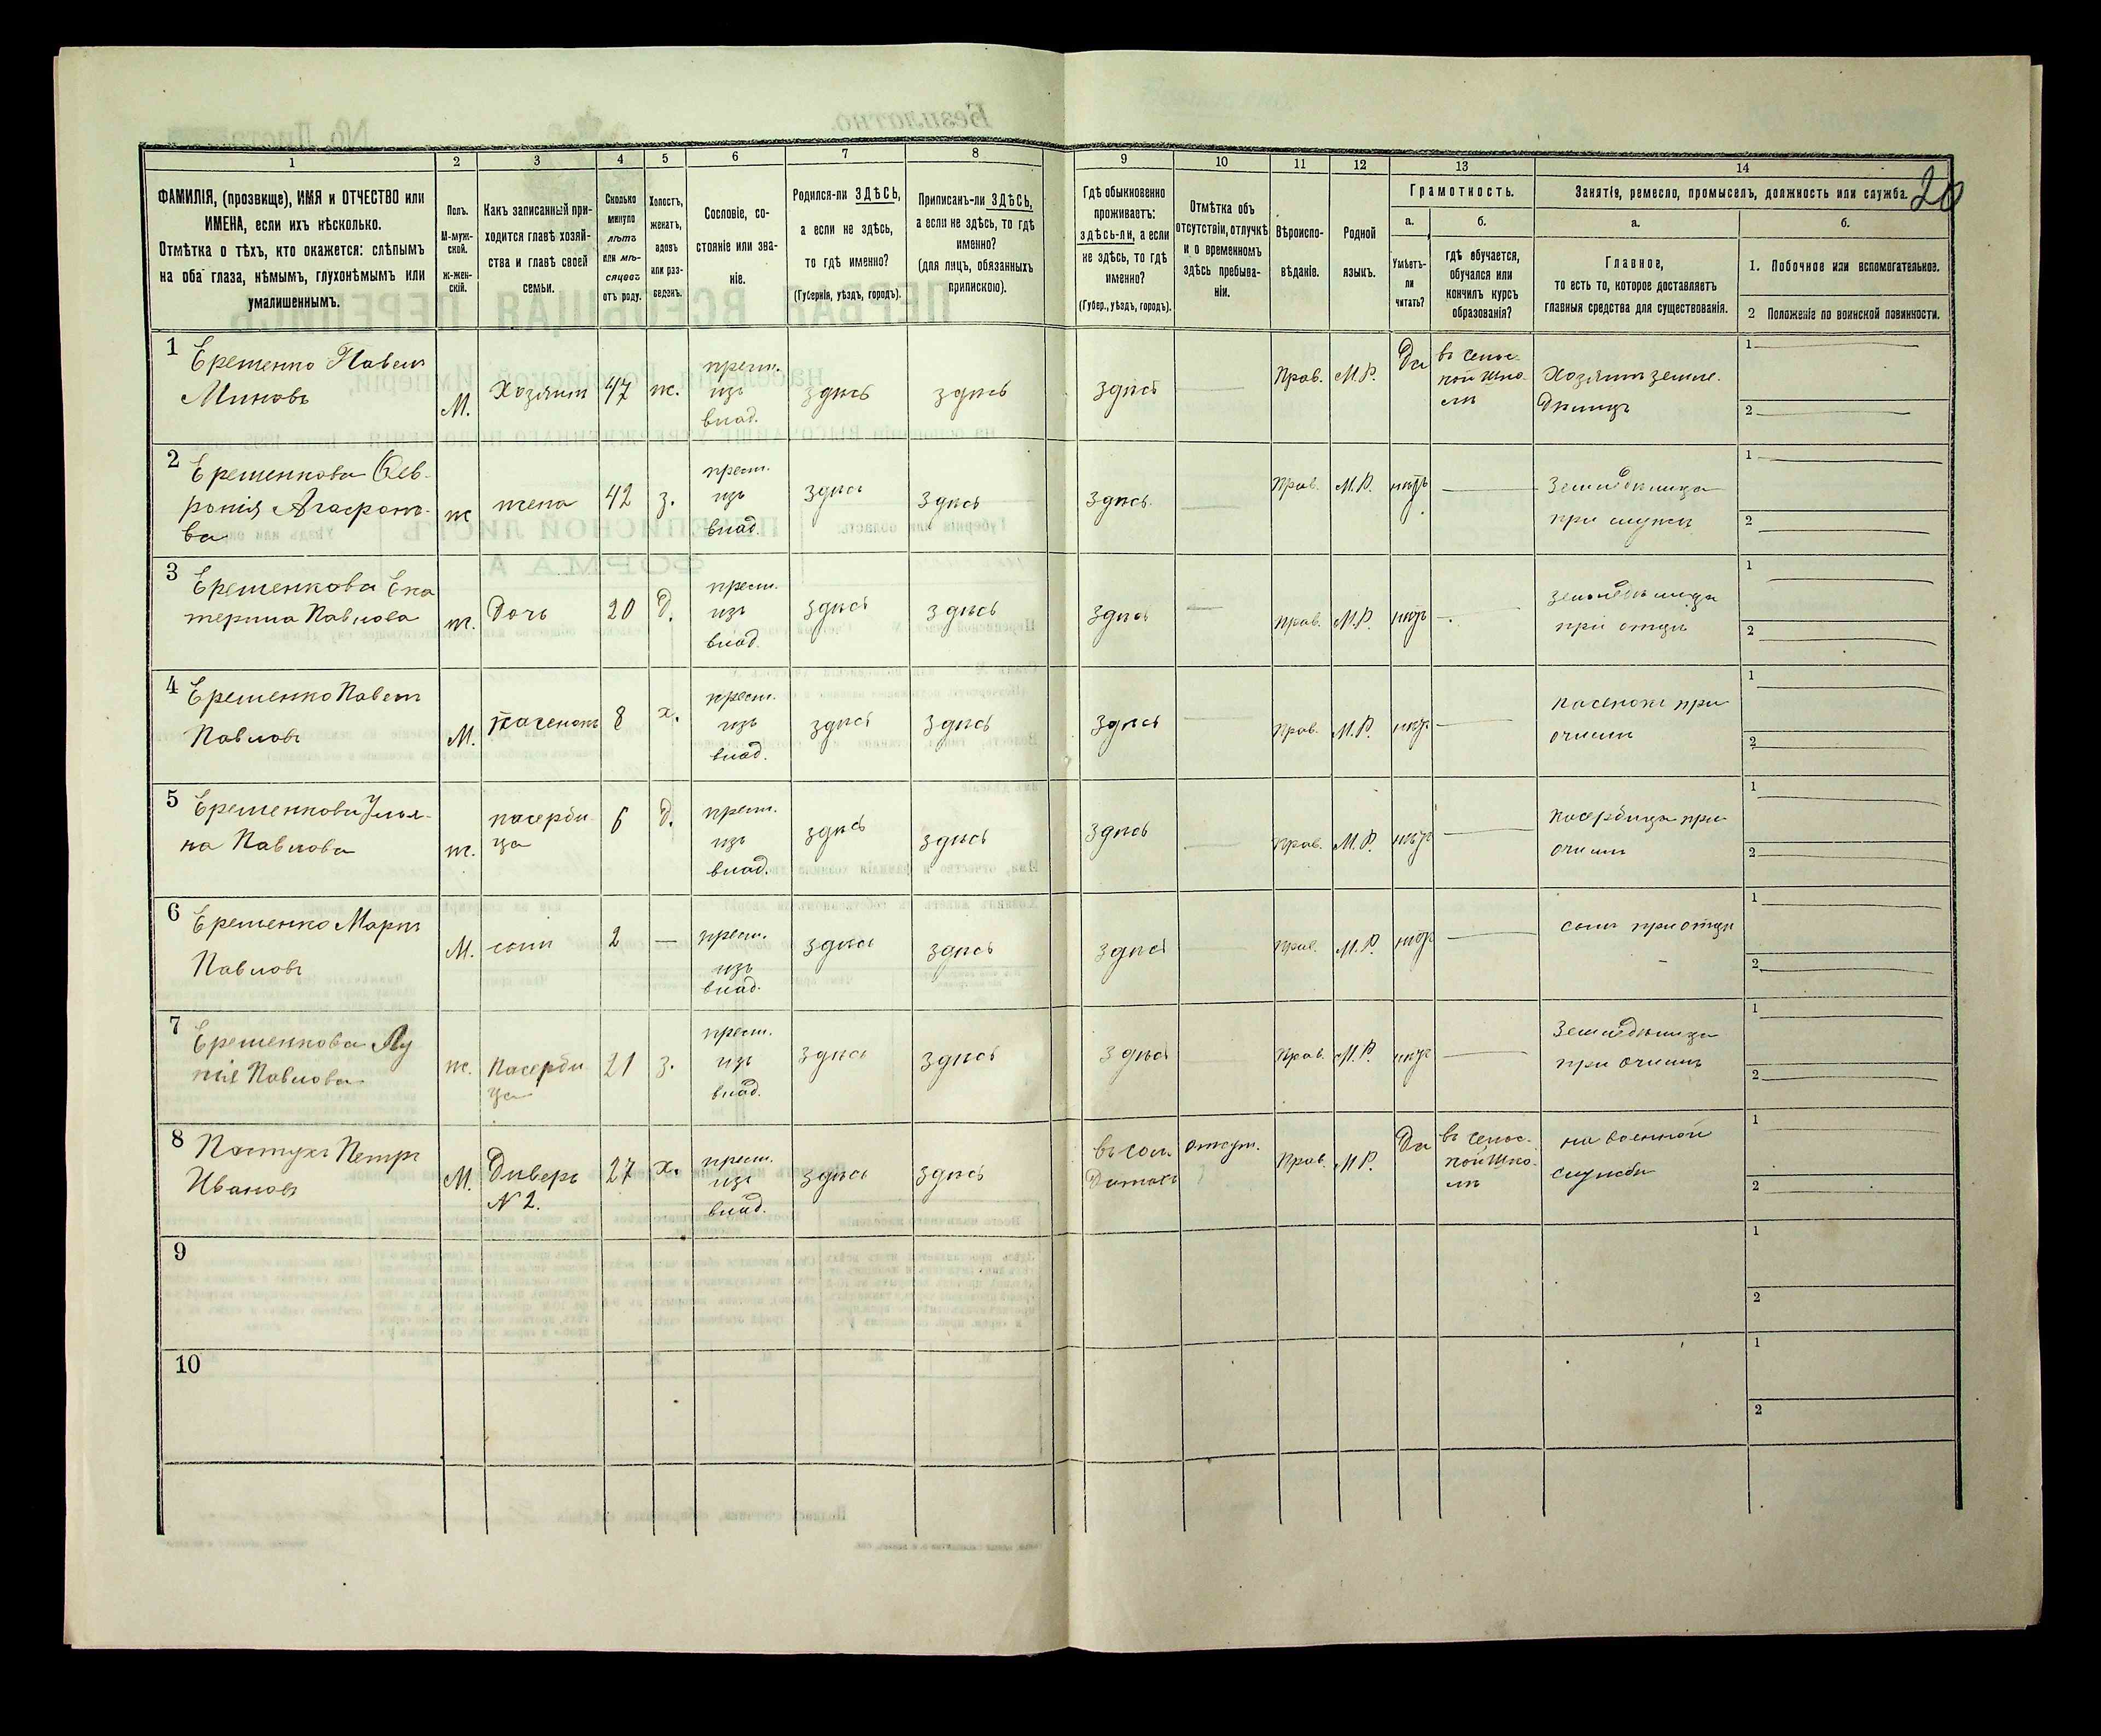 1 2 3 4 5 6 7 8 9 10 11 12 13 14
20
ФАМИЛІЯ, (прозвище), ИМЯ и ОТЧЕСТВО или
ИМЕНА, если ихъ нѣсколько.
Отмѣтка о тѣхъ, кто окажется: слѣпымъ
на оба глаза, нѣмымъ, глухонѣмымъ или
умалишеннымъ.
Полъ.
М-муж-
ской.
Ж-жен-
скій.
Какъ записанный при-
ходится главѣ хозяй-
ства и главѣ своей
семьи.
Сколько
минуло
лѣтъ
или мѣ-
сяцевъ
отъ роду.
Холостъ,
женатъ,
вдовъ
или раз-
веденъ.
Сословіе, со-
стояніе или зва-
ніе.
Родился-ли ЗДѢСЬ,
а если не здѣсь,
то гдѣ именно?
(Губернія, уѣздъ, городъ).
Приписанъ-ли ЗДѢСЬ,
а если не здѣсь, то гдѣ
именно?
(для лицъ, обязанныхъ
припискою).
Гдѣ обыкновенно
проживаетъ:
здѣсь-ли, а если
не здѣсь, то гдѣ
именно?
(Губер., уѣздъ, городъ).
Отмѣтка объ
отсутствіи, отлучкѣ
и о временномъ
здѣсь пребыва-
ніи.
Вѣроиспо-
вѣданіе.
Родной
языкъ.
Грамотность.
а.
Умѣетъ-
ли
читать?
б.
гдѣ обучается,
обучался или
кончилъ курсъ
образованія?
Занятія, ремесло, промыселъ, должность или служба.
а.
Главное,
то есть то, которое доставляетъ
главныя средства для существованія.
б.
1. Побочное или вспомогательное.
2 Положеніе по воинской повинности.
1 Ерешенко Павелъ
Миновъ
М.
Хозяинъ
47
ж.
крест.
изъ
влад.
здѣсь
здѣсь
здѣсь
Прав.
М.Р.
Да
въ сельс-
кой шко-
лѣ
Хозяинъ земле-
дѣлецъ
1
2
2 Ерешенкова Фев-
ронія Агафоно-
ва
ж
жена
42
з.
крест.
изъ
влад.
здѣсь
здѣсь
здѣсь
Прав.
М.Р.
нѣтъ
Земледѣлица
при мужѣ
1
2
3 Ерешенкова Ека
терина Павлова
ж.
Дочь
20
д.
крест.
изъ
влад.
здѣсь
здѣсь
здѣсь
прав.
М.Р.
нѣтъ
земледѣлица
при отцѣ
1
2
4 Ерешенко Павелъ
Павловъ
М.
пасенокъ
8
х.
крест.
изъ
влад.
здѣсь
здѣсь
здѣсь
Прав.
М.Р.
нѣтъ
пасенокъ при
очимѣ
1
2
5 Ерешенкова Улья-
на Павлова
ж.
пасерби-
ца
6
д.
крест.
изъ
влад.
здѣсь
здѣсь
здѣсь
Прав.
М.Р.
нѣтъ
пасербица при
очимѣ
1
2
6 Ерешенко Маркъ
Павловъ
М.
сынъ
2
—
крест.
изъ
влад.
здѣсь
здѣсь
здѣсь
прав.
М.Р.
нѣтъ
сынъ при отцѣ
1
2
7 Ерешенкова
Павлова
ж.
Пасерби-
ца
21
з.
крест.
изъ
влад.
здѣсь
здѣсь
здѣсь
Прав.
М.Р.
нѣтъ
Земледѣлица
при очимѣ
1
2
8 Пастухъ Петръ
Ивановъ
М.
Диверь
№ 2.
27
х.
крест.
изъ
влад.
здѣсь
здѣсь
въ сол-
датахъ
отсут.
Прав.
М.Р.
Да
въ сельс-
кой шко-
лѣ
на военной
службѣ
1
2
9
1
2
10
1
2